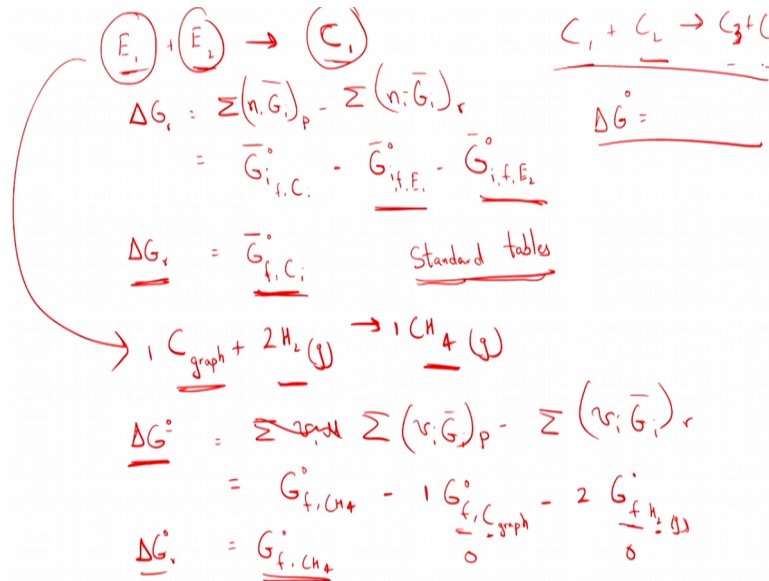 E₁ + E₂ → C₁
C₁ + C₂ → C₃ + C
ΔGᵣ = Σ(nᵢ Ḡᵢ)ₚ - Σ(nᵢ Ḡᵢ)ᵣ
ΔG° =
= Ḡ°ᵢ,f,C₁ - Ḡ°ᵢ,f,E₁ - Ḡ°ᵢ,f,E₂
ΔGᵣ = Ḡ°f,Cᵢ Standard tables
1 C graph + 2H₂ (g) → 1 CH₄ (g)
ΔG° = Σ(νᵢ Ḡᵢ)ₚ - Σ(νᵢ Ḡᵢ)ᵣ
= G°f,CH₄ - 1 G°f,C graph - 2 G°f H₂ (g)
0 0
ΔG°ᵣ = G°f,CH₄